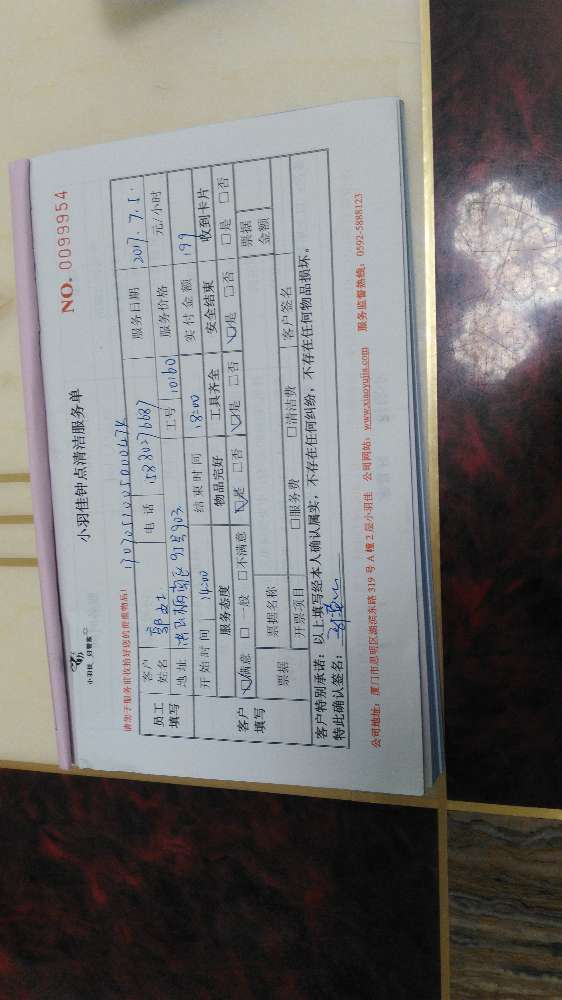 小羽佳 好管家
小羽佳钟点清洁服务单
NO. 0099954
请您于服务前收拾好您的贵重物品!
员工填写 客户姓名 郭女士 电话 15880276087 服务日期 2017.7.5.
地址 91号903 工号 10160 服务价格 元/小时
开始时间 14:00 结束时间 18:00 实付金额 199
客户填写 服务态度 物品完好 工具齐全 安全结束 收到卡片
☑满意 □一般 □不满意 ☑是 □否 ☑是 □否 ☑是 □否 □是 □否
票据 票据名称 票据金额
开票项目 □服务费 □清洁费 客户签名
客户特别承诺:以上填写经本人确认属实,不存在任何纠纷,不存在任何物品损坏。
特此确认签名:
公司地址:厦门市思明区湖滨东路 319 号 A 幢 2 层小羽佳 公司网站:www.xiaoyujia.com 服务监督热线:0592-5888123